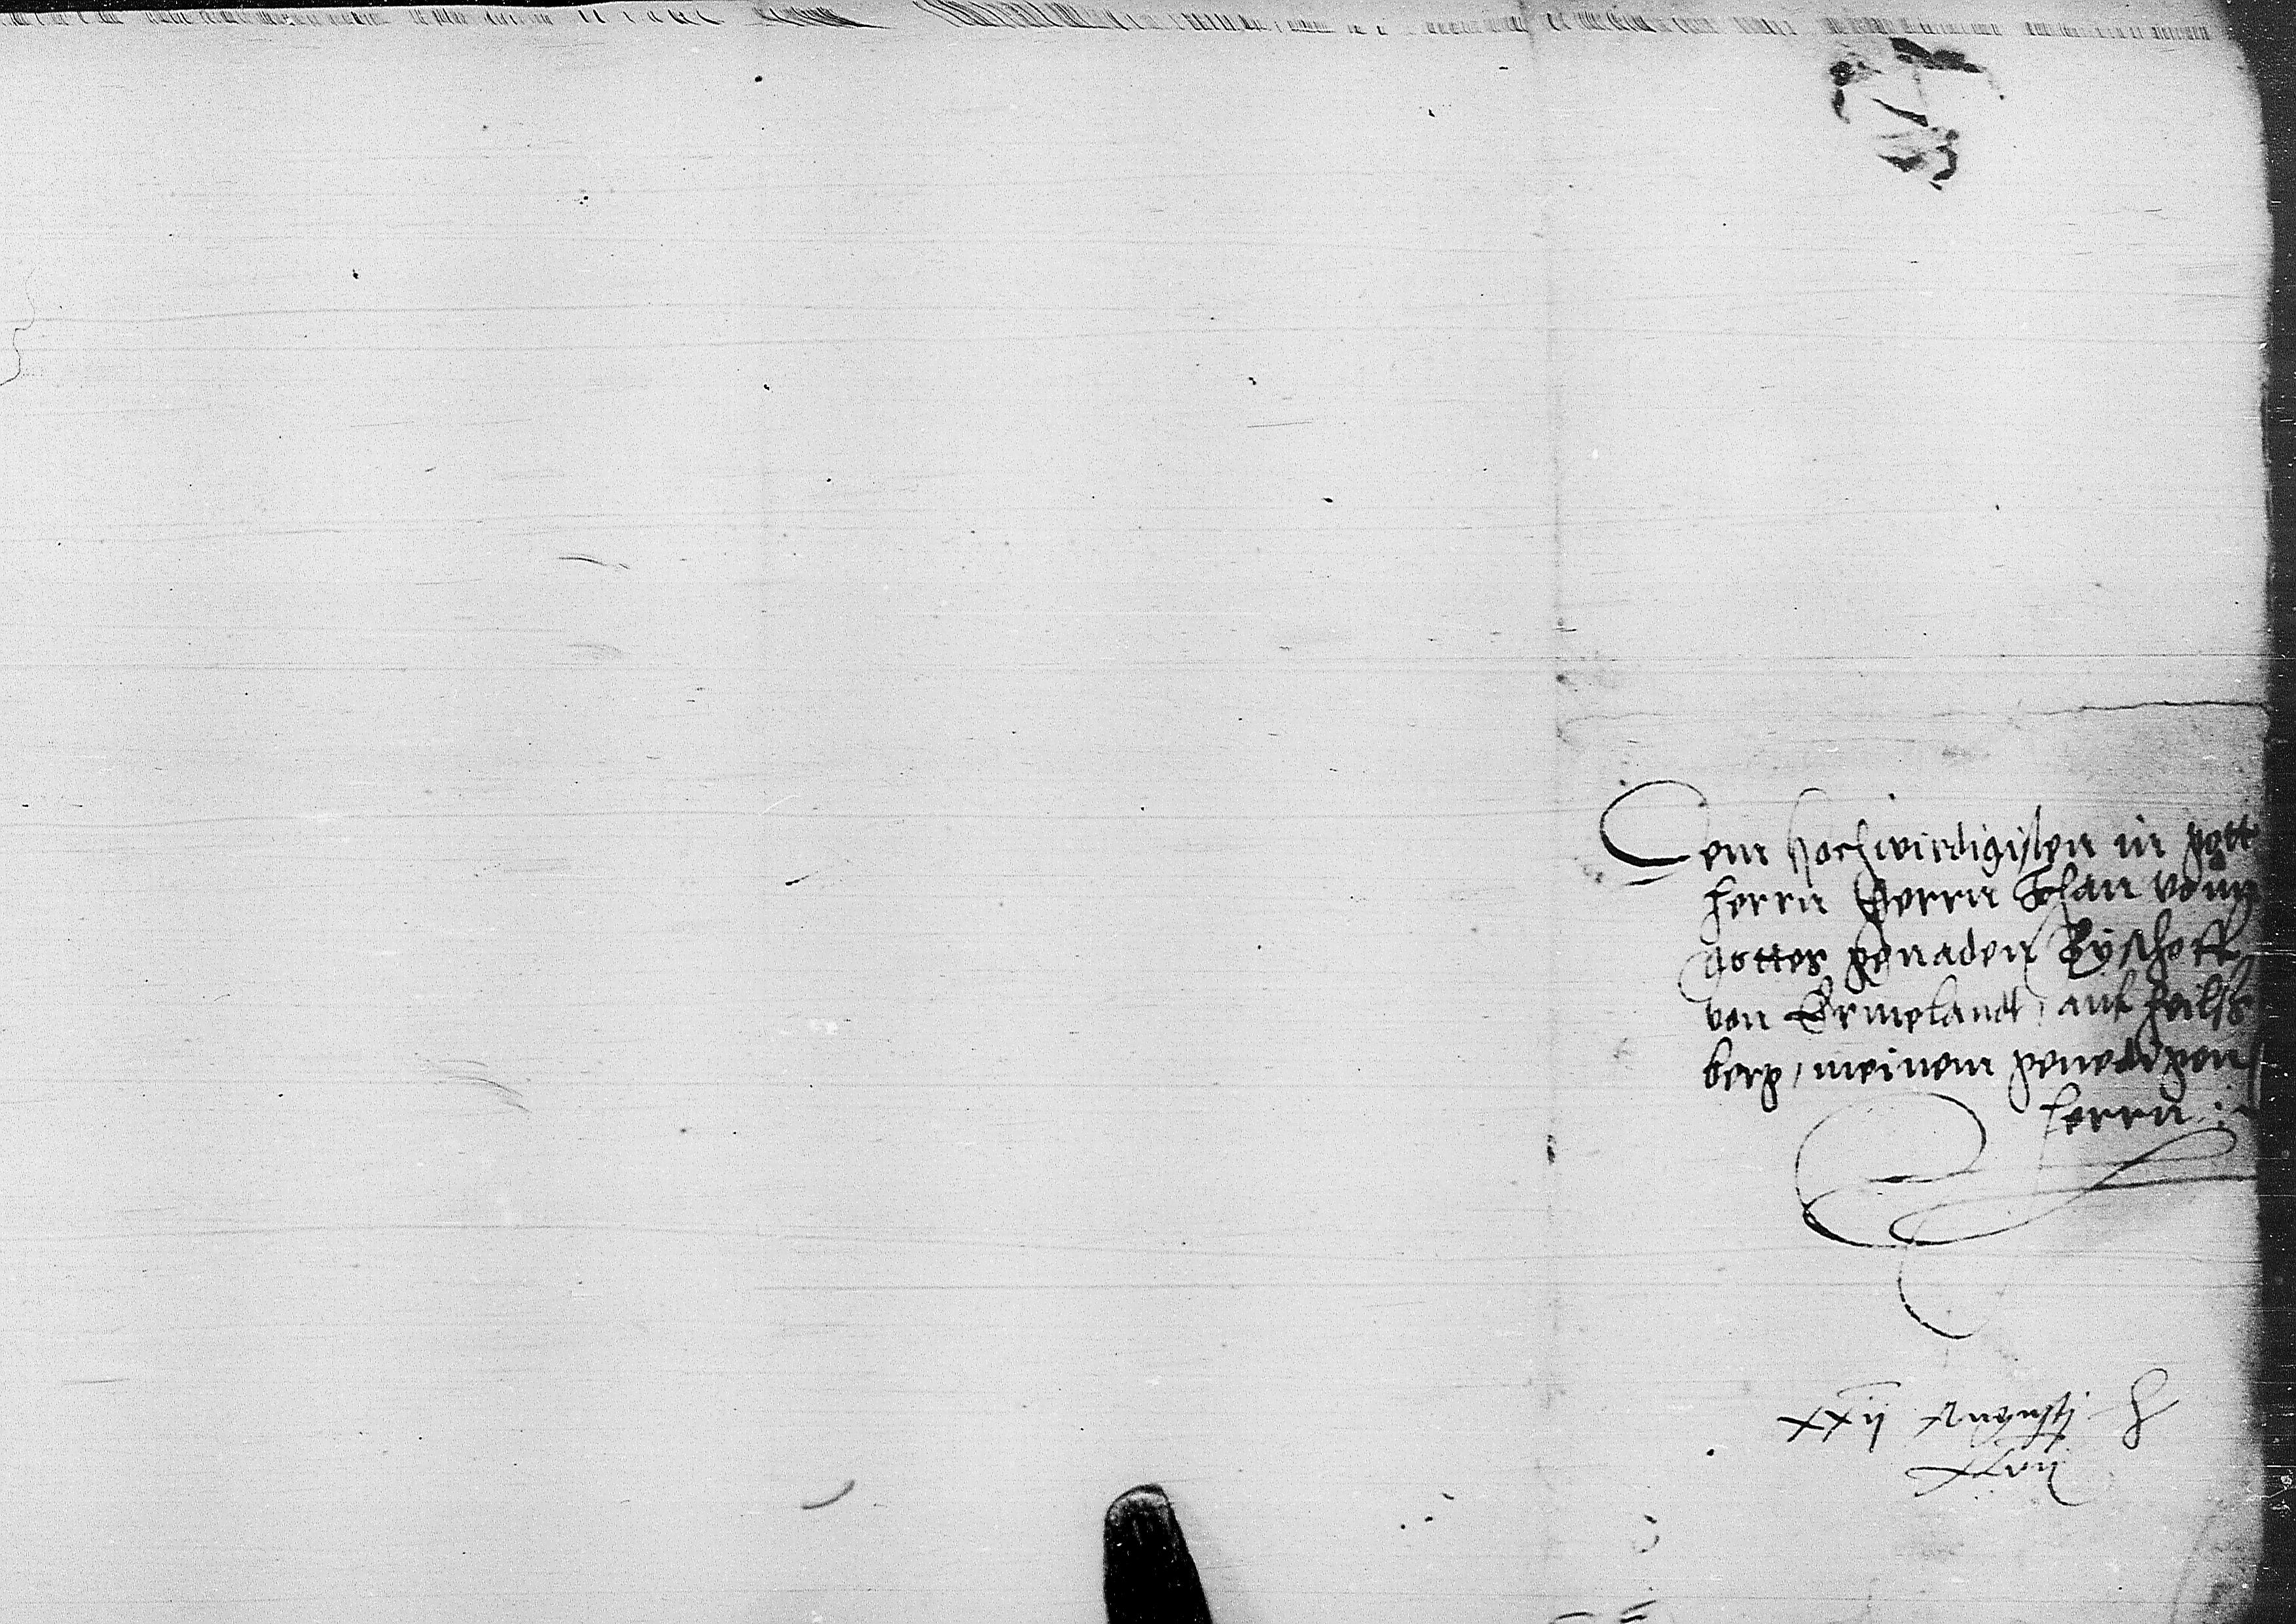 Dem hochwirdigisten in gott
herrn Herrn Johan vonn
gottes genaden Byschoff
von Ermelandt, auf heils
berg, meinem genedigen
herrn
XXII Augusti